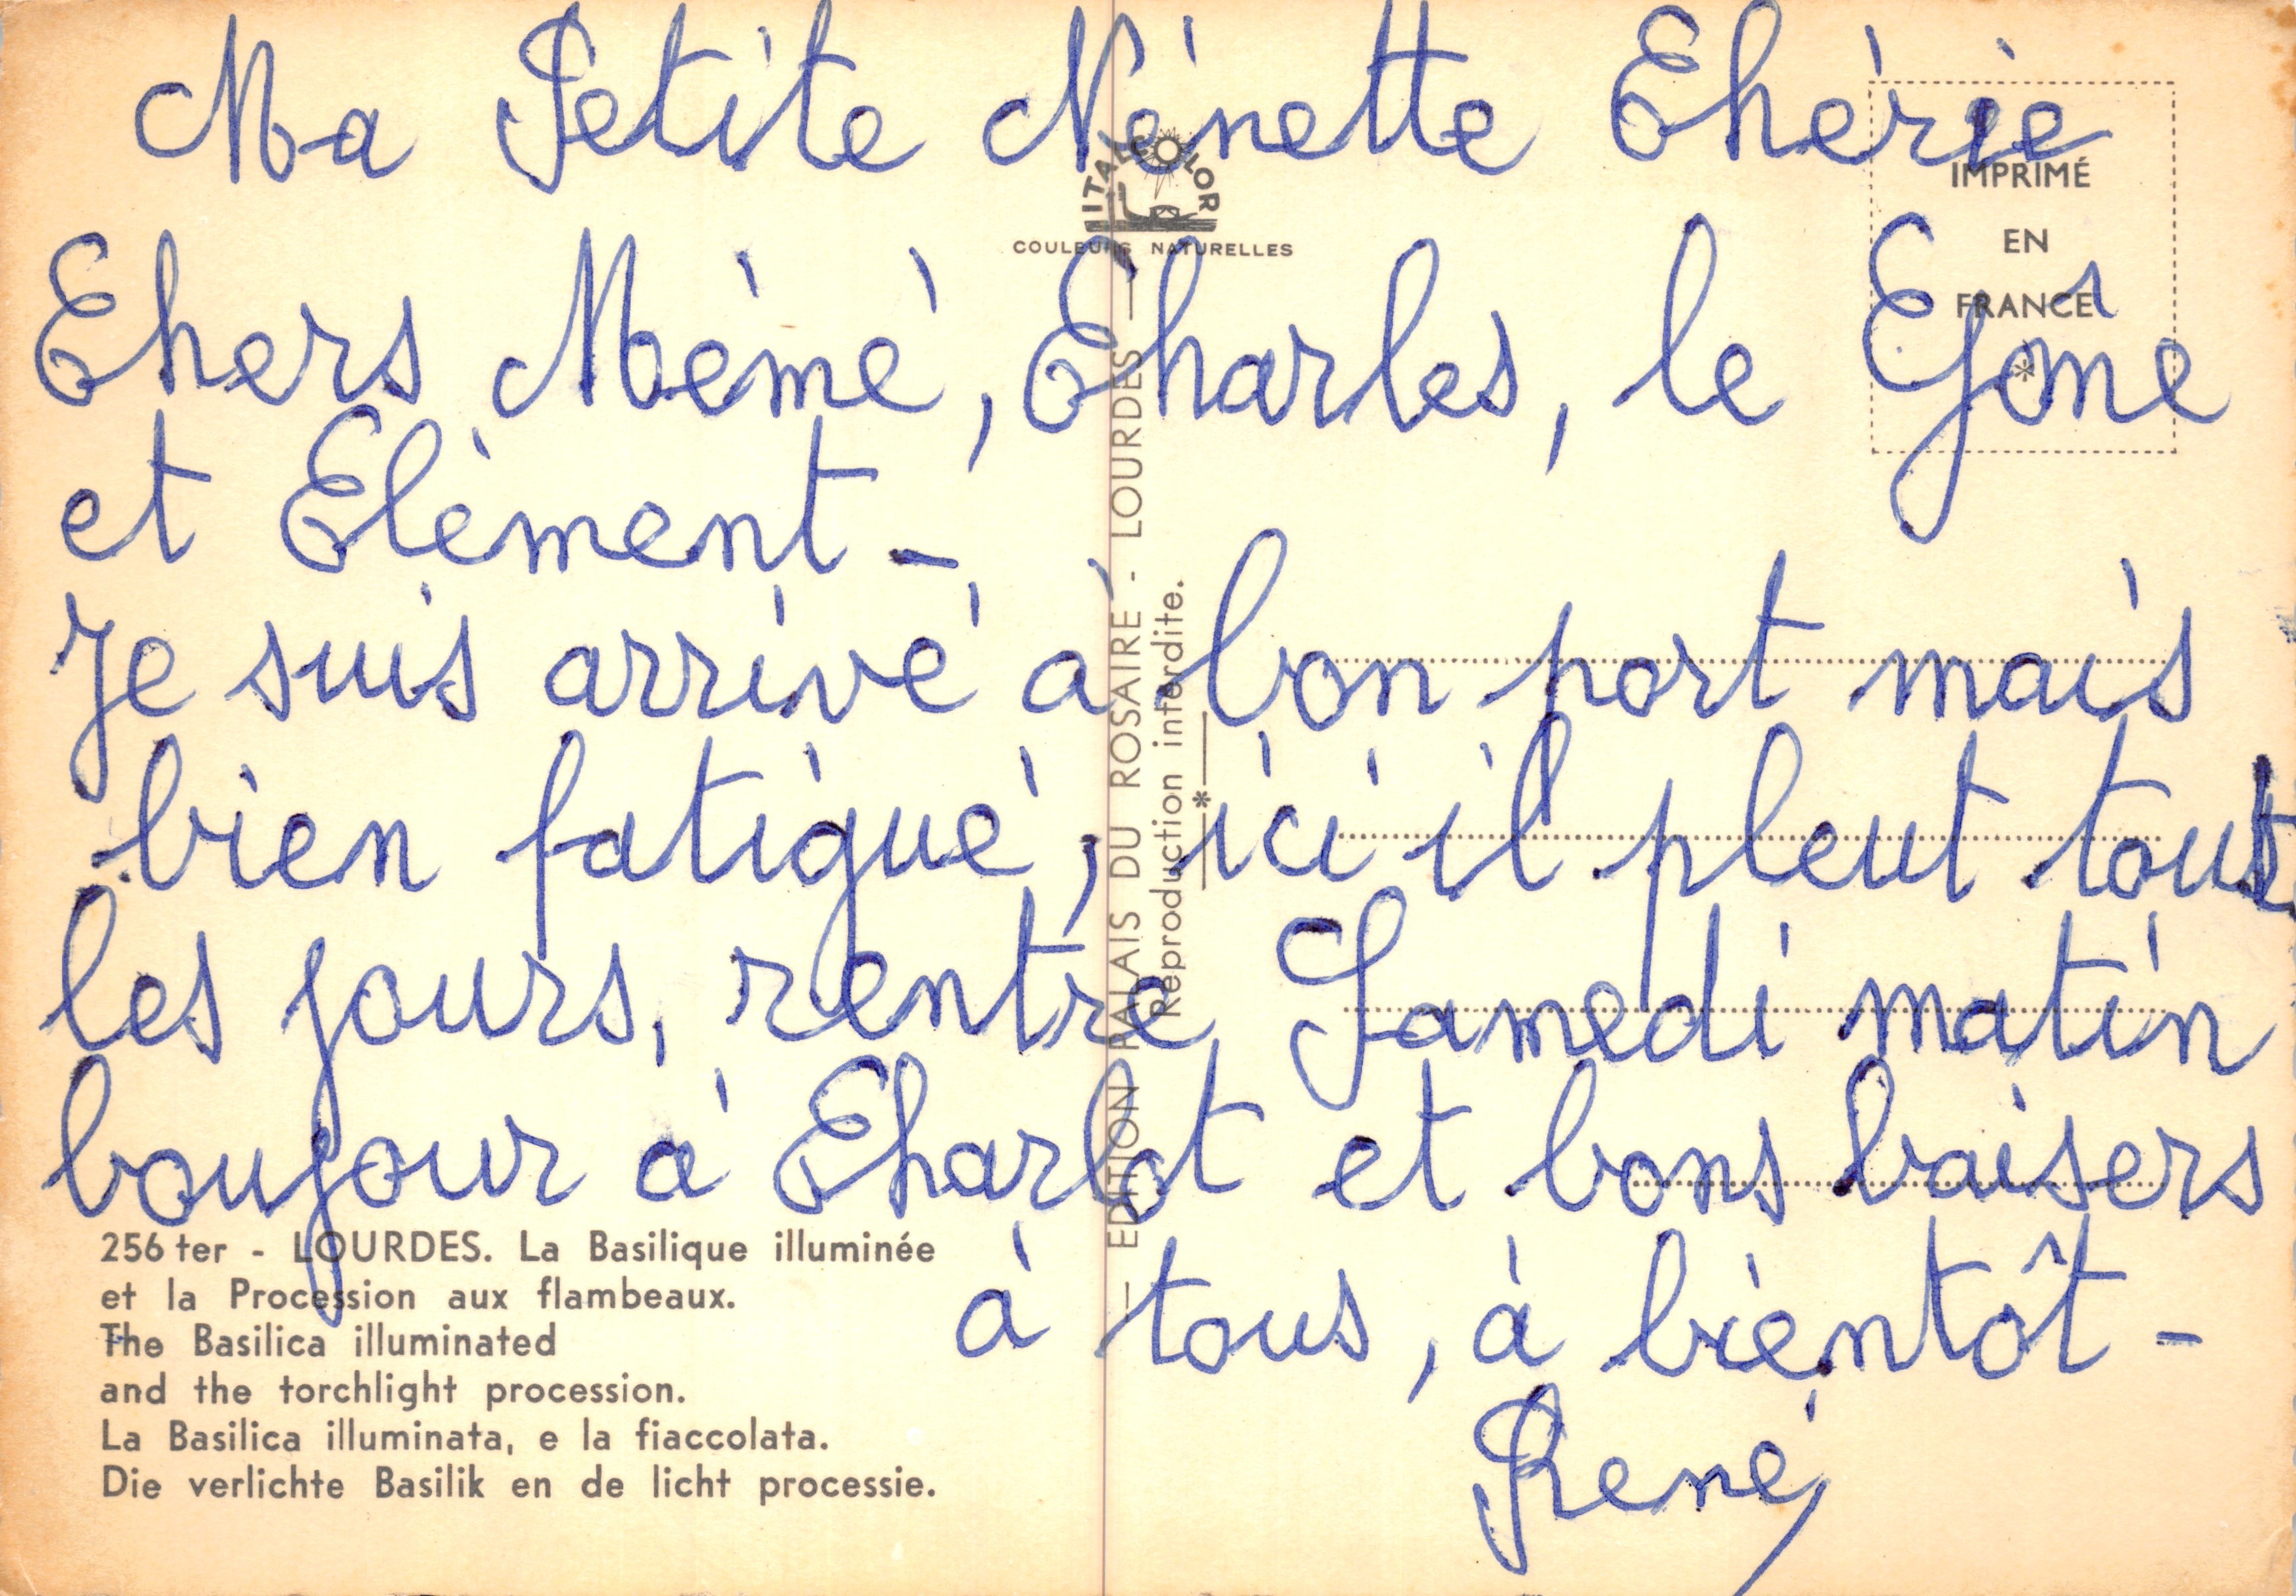 Ma Petite Nénette Chérie
Chers Mémé, Charles, le
et Clément -
Je suis arrivé à bon port mais
bien fatigué, ici il pleut tout
les jours, rentre Samedi matin
boujour à Charlot et bons baisers
à tous, à bientôt -
René
ITALCOLOR
COULEURS NATURELLES
IMPRIMÉ
EN
FRANCE
*
— EDITION PALAIS DU ROSAIRE - LOURDES —
Reproduction interdite.
—*—
256 ter - LOURDES. La Basilique illuminée
et la Procession aux flambeaux.
The Basilica illuminated
and the torchlight procession.
La Basilica illuminata, e la fiaccolata.
Die verlichte Basilik en de licht processie.